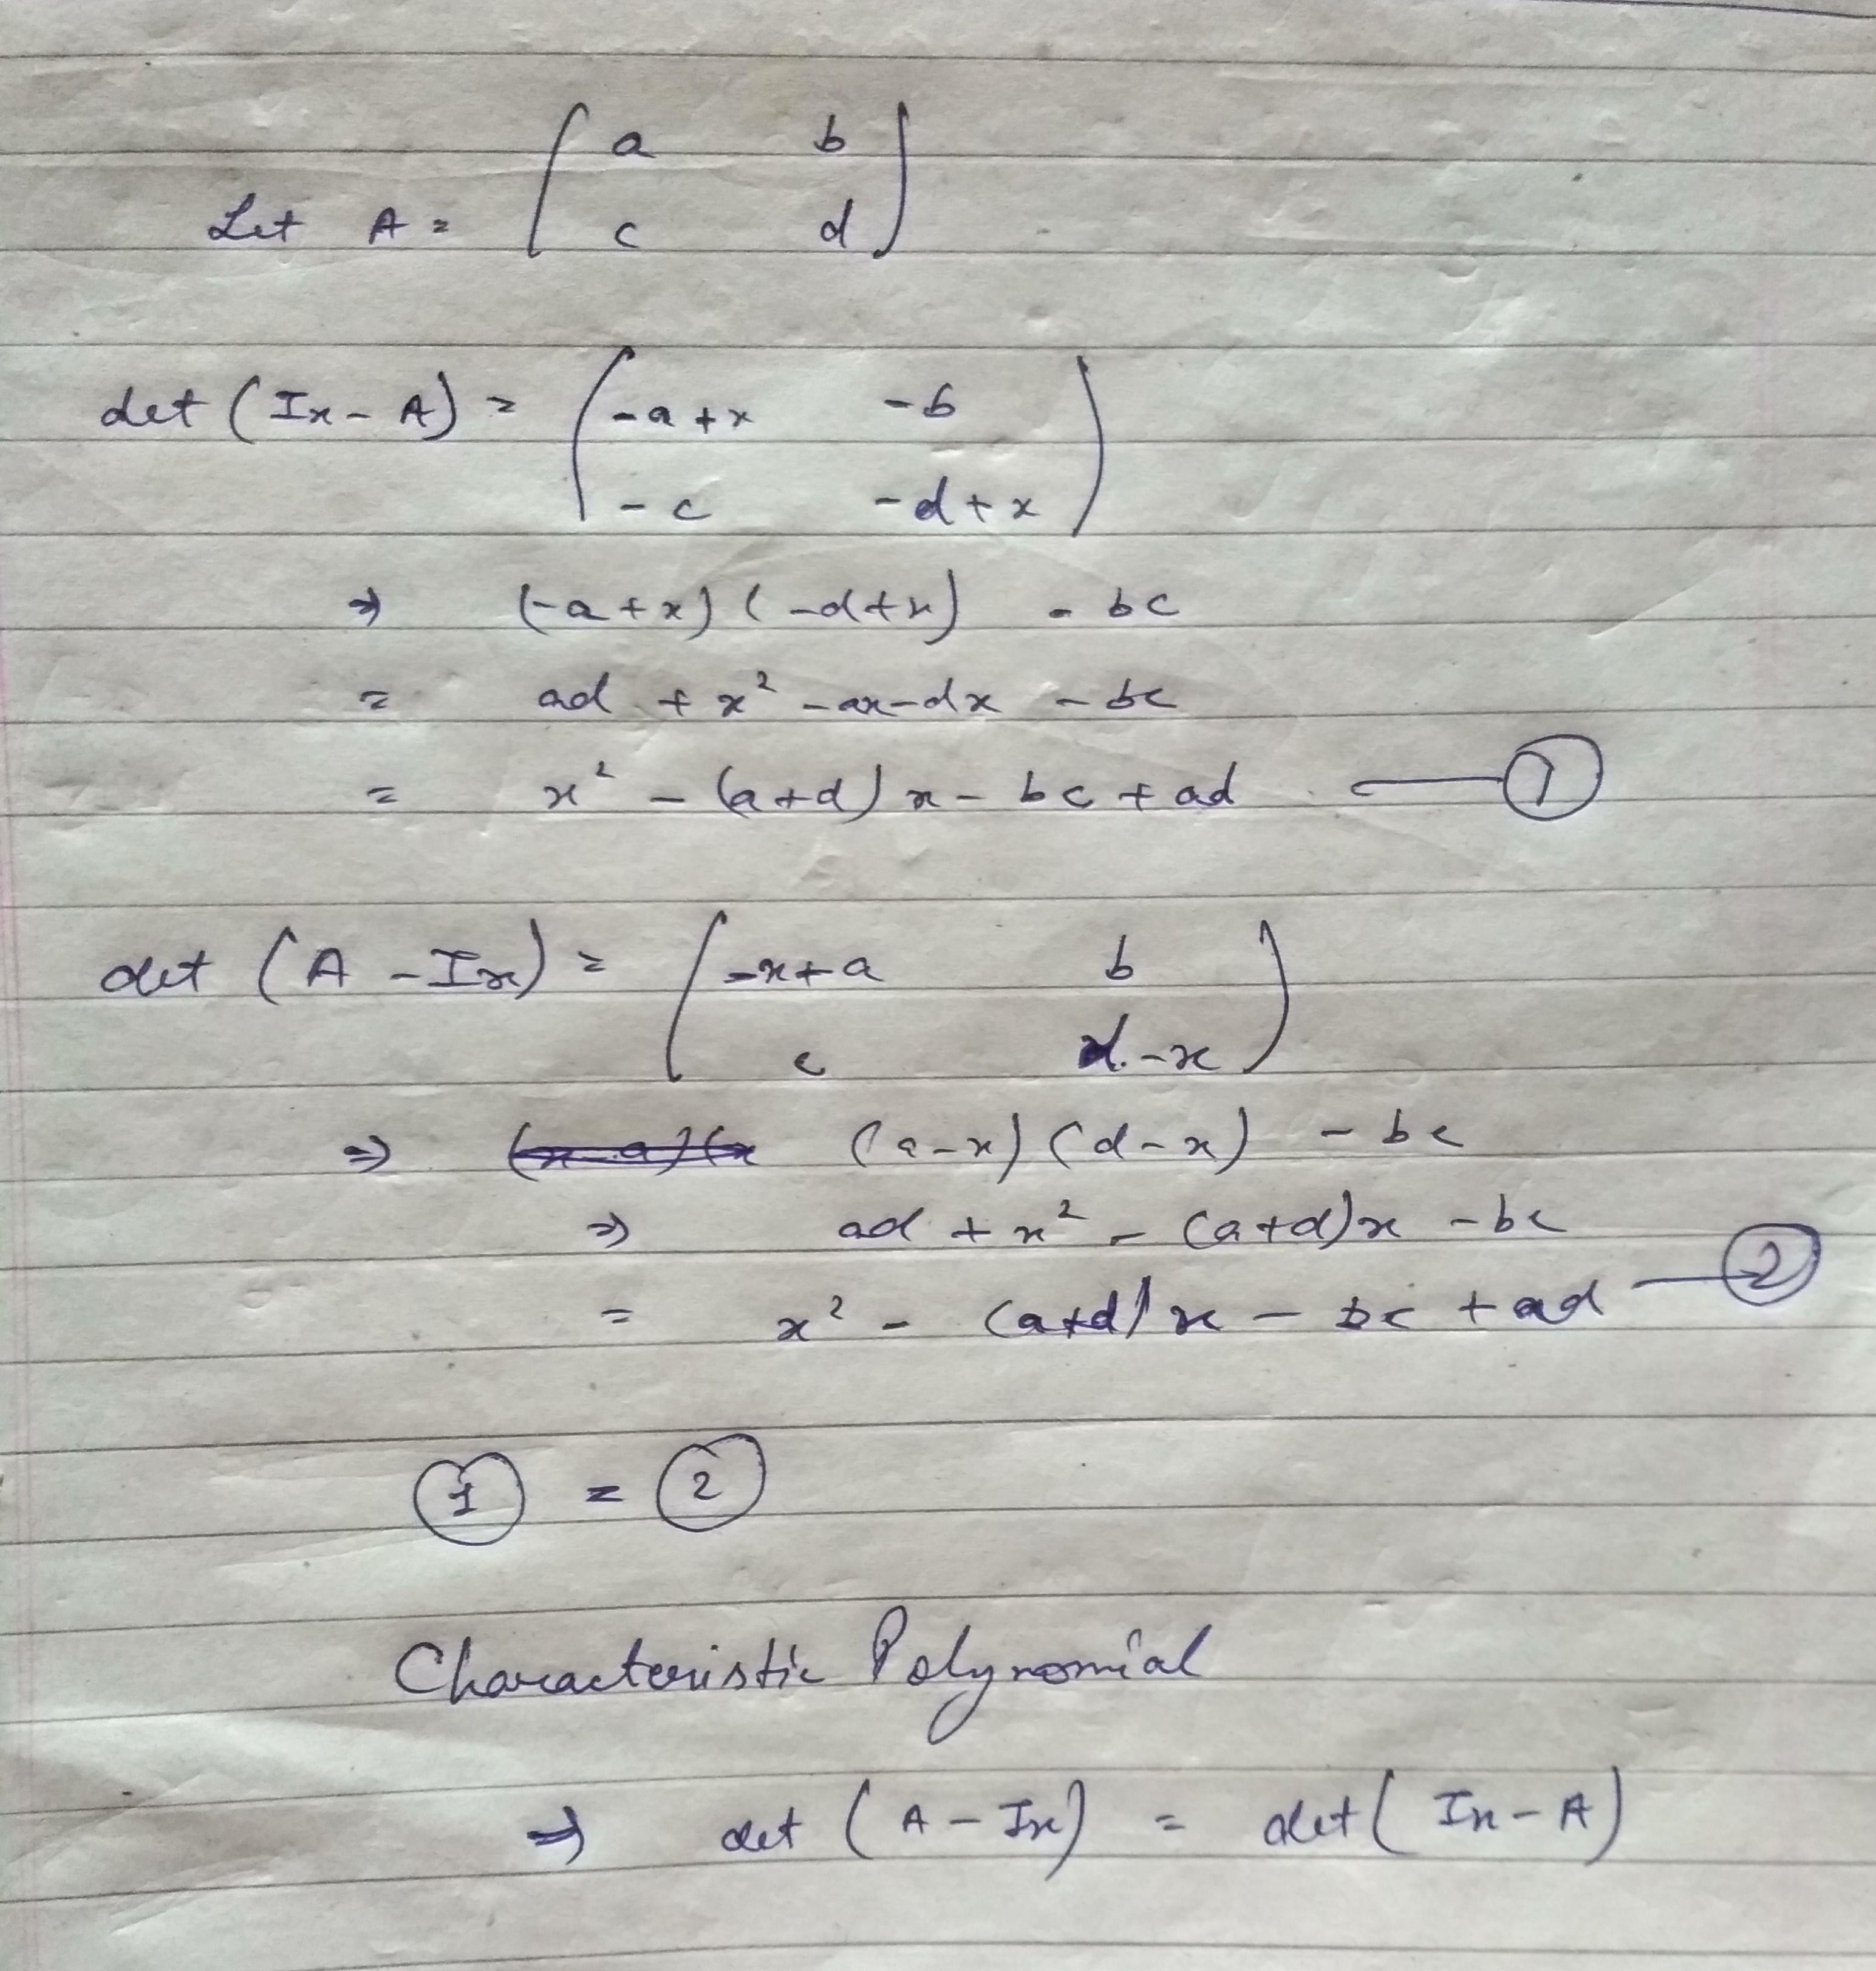 Let A = ( a b
c d )
det (Ix - A) = ( -a+x -b
-c -d+x )
⇒ (-a+x) (-d+x) - bc
= ad + x² - ax - dx - bc
= x² - (a+d) x - bc + ad — ①
det (A - Ix) = ( -x+a b
c d-x )
⇒ (a-x) (d-x) - bc
⇒ ad + x² - (a+d)x - bc
= x² - (a+d) x - bc + ad — ②
① = ②
Characteristic Polynomial
⇒ det (A - Ix) = det (Ix - A)